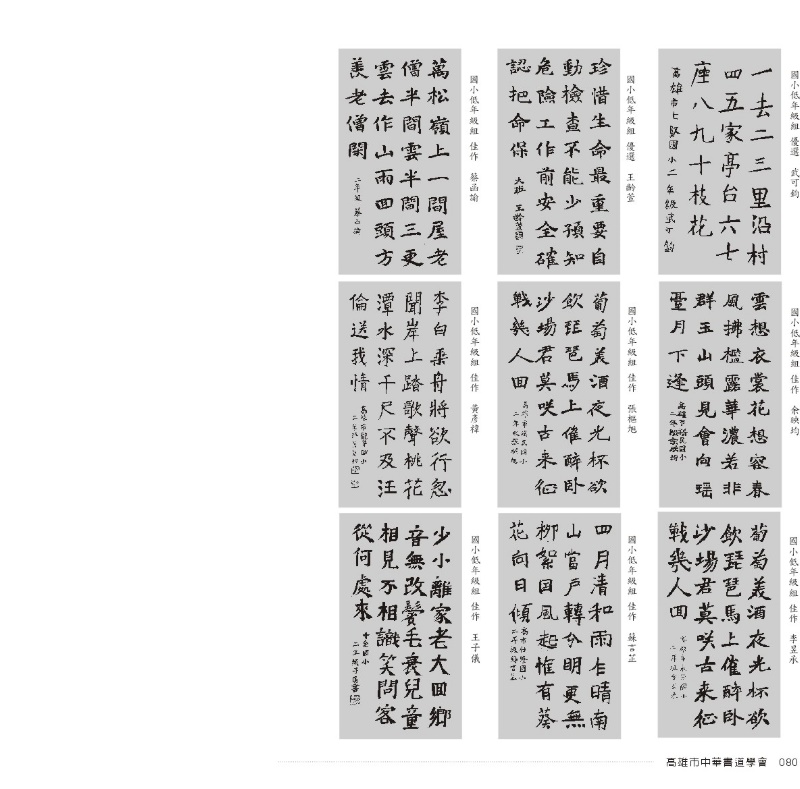 國小低年級組 優選 武可鈞
一去二三里沿村
四五家亭台六七
座八九十枝花
高雄市七賢國小二年級武可鈞
國小低年級組 優選 王齡萱
珍惜生命最重要自
動檢查不能少預知
危險工作前安全確
認把命保
大班 王齡萱
國小低年級組 佳作 蔡函諭
萬松嶺上一間屋老
僧半間雲半間三更
雲去作山雨回頭方
羨老僧閑
國小低年級組 佳作 余映均
雲想衣裳花想容春
風拂檻露華濃若非
群玉山頭見會向瑶
臺月下逢
國小低年級組 佳作 張楒旭
葡萄美酒夜光杯欲
飲琵琶馬上催醉卧
沙場君莫咲古来征
戰幾人回
國小低年級組 佳作 黃彥禕
李白乘舟將欲行忽
聞岸上踏歌聲桃花
潭水深千尺不及汪
倫送我情
國小低年級組 佳作 李昱承
葡萄美酒夜光杯欲
飲琵琶馬上催醉卧
沙場君莫咲古来征
戰幾人回
國小低年級組 佳作 蘇言芷
四月清和雨乍晴南
山當戶轉分明更無
柳絮因風起惟有葵
花向日傾
國小低年級組 佳作 王子儀
少小離家老大回鄉
音無改鬢毛衰兒童
相見不相識笑問客
從何處來
高雄市中華書道學會 080